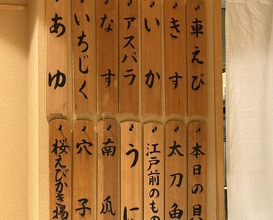 車えび
きす
いか
アスパラ
なす
いちじく
あゆ
本日の貝
太刀魚
江戸前のもの
うに
南瓜
穴子
桜えびかき揚